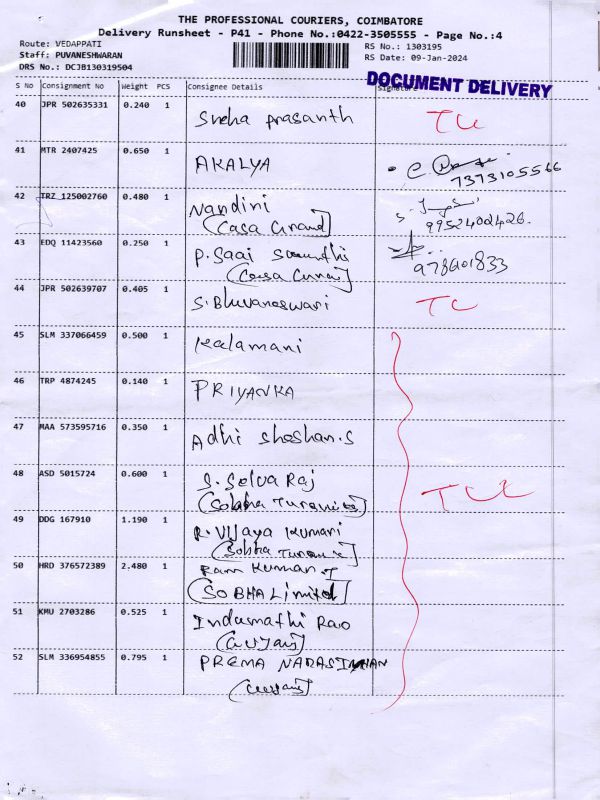 THE PROFESSIONAL COURIERS, COIMBATORE
Delivery Runsheet - P41 - Phone No.:0422-3505555 - Page No.:4
Route: VEDAPPATI
RS No.: 1303195
Staff: PUVANESHWARAN
RS Date: 09-Jan-2024
DRS No.: DCJB130319504
DOCUMENT DELIVERY
S No Consignment No Weight PCS Consignee Details Signature
40 JPR 502635331 0.240 1 Sneha Prasanth
41 MTR 2407425 0.650 1 AKALYA 7373105566
42 TRZ 125002760 0.480 1 Nandini 9952402426.
(Casa Grand)
43 EDQ 11423560 0.250 1 P. Saai
44 JPR 502639707 0.405 1 S. Bhuvaneswari
45 SLM 337066459 0.500 1 Kalamani
46 TRP 4874245 0.140 1 PRIYANKA
47 MAA 573595716 0.350 1 Adhi Sheshan.S
48 ASD 5015724 0.600 1 S. Selva Raj
(Sobha
49 DDG 167910 1.190 1 R. Vijaya Kumari
(Sobha
50 HRD 376572389 2.480 1 Ram Kuman
(SOBHA Limited)
51 KMU 2703286 0.525 1 Indumathi Rao
52 SLM 336954855 0.795 1 PREMA NARASIMHAN